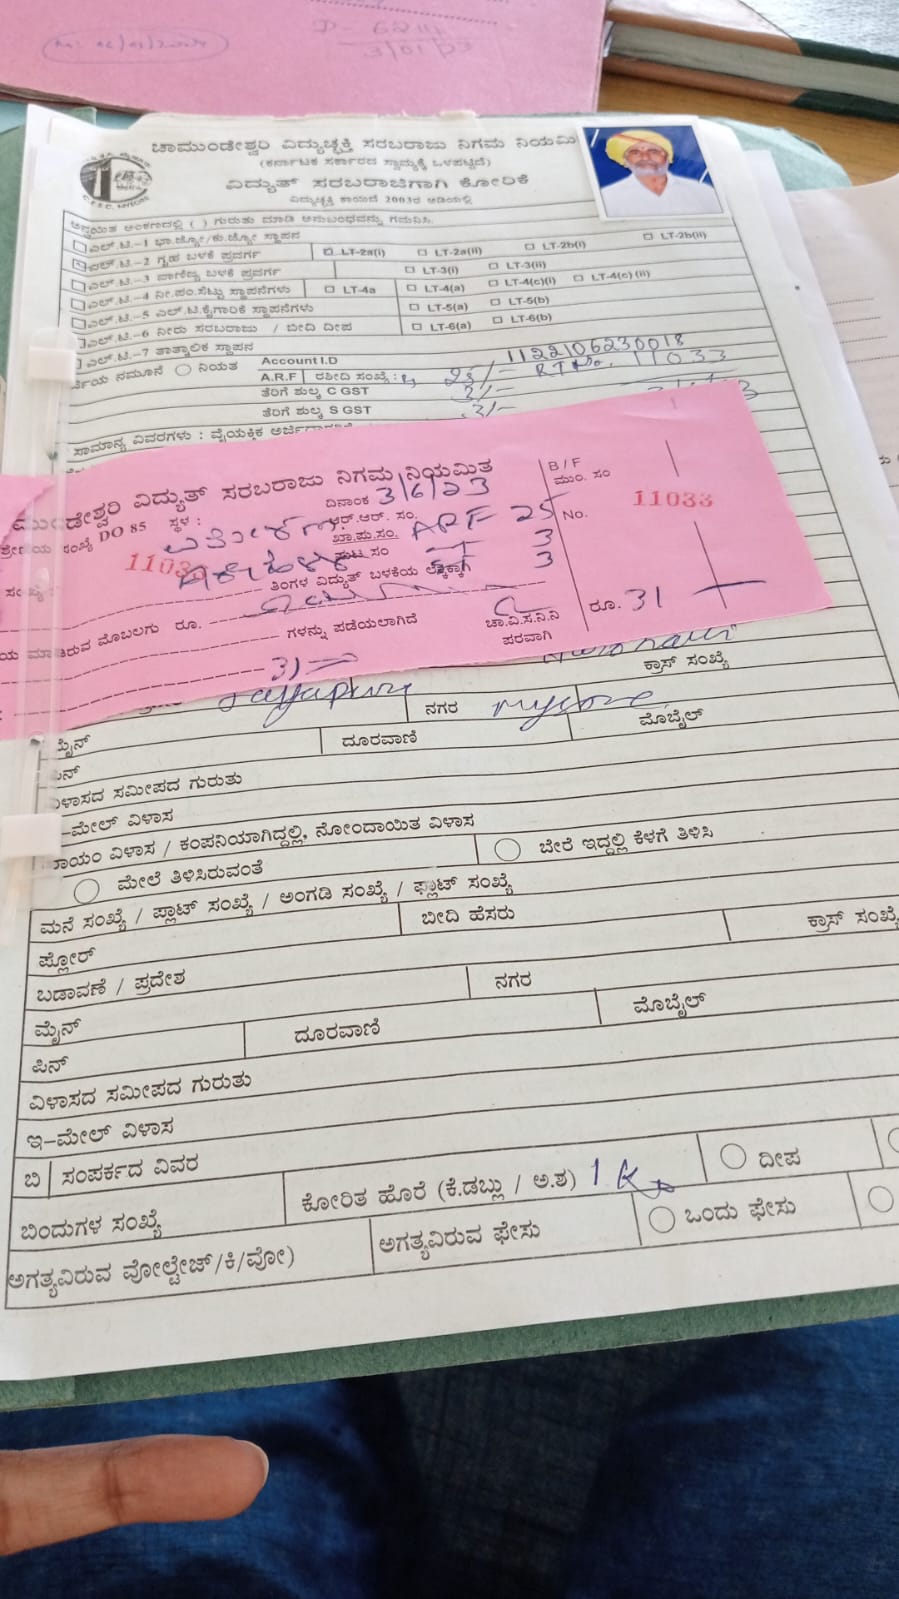 ಚಾಮುಂಡೇಶ್ವರಿ ವಿದ್ಯುಚ್ಛಕ್ತಿ ಸರಬರಾಜು ನಿಗಮ ನಿಯಮಿ
(ಕರ್ನಾಟಕ ಸರ್ಕಾರದ ಸ್ವಾಮ್ಯಕ್ಕೆ ಒಳಪಟ್ಟಿದೆ)
ವಿದ್ಯುತ್ ಸರಬರಾಜಿಗಾಗಿ ಕೋರಿಕೆ
ವಿದ್ಯುಚ್ಛಕ್ತಿ ಕಾಯಿದೆ 2003ರ ಅಡಿಯಲ್ಲಿ
ಅನ್ವಯಿತ ಅಂಕಣದಲ್ಲಿ ( ) ಗುರುತು ಮಾಡಿ ಅನುಬಂಧವನ್ನು ಗಮನಿಸಿ.
ಎಲ್.ಟಿ.-1 ಭಾ.ಜ್ಯೋ/ಕು.ಜ್ಯೋ ಸ್ಥಾಪನ
ಎಲ್.ಟಿ.-2 ಗೃಹ ಬಳಕೆ ಪ್ರವರ್ಗ LT-2a(i) LT-2a(ii) LT-2b(i) LT-2b(ii)
ಎಲ್.ಟಿ.-3 ವಾಣಿಜ್ಯ ಬಳಕೆ ಪ್ರವರ್ಗ LT-3(i) LT-3(ii)
ಎಲ್.ಟಿ.-4 ನೀ.ಪಂ.ಸೆಟ್ಟು ಸ್ಥಾಪನೆಗಳು LT-4a LT-4(a) LT-4(c)(i) LT-4(c)(ii)
ಎಲ್.ಟಿ.-5 ಎಲ್.ಟಿ.ಕೈಗಾರಿಕೆ ಸ್ಥಾಪನೆಗಳು LT-5(a) LT-5(b)
ಎಲ್.ಟಿ.-6 ನೀರು ಸರಬರಾಜು / ಬೀದಿ ದೀಪ LT-6(a) LT-6(b)
ಎಲ್.ಟಿ.-7 ತಾತ್ಕಾಲಿಕ ಸ್ಥಾಪನ
ನಮೂನೆ ನಿಯತ Account I.D 1122106230018
A.R.F ರಶೀದಿ ಸಂಖ್ಯೆ : 25/- 11033
ತೆರಿಗೆ ಶುಲ್ಕ C GST 3/-
ತೆರಿಗೆ ಶುಲ್ಕ S GST 3/-
ಸಾಮಾನ್ಯ ವಿವರಗಳು : ವೈಯಕ್ತಿಕ
ಮುಂಡೇಶ್ವರಿ ವಿದ್ಯುತ್ ಸರಬರಾಜು ನಿಗಮ ನಿಯಮಿತ
ಸಂಖ್ಯೆ DO 85 ಸ್ಥಳ : ದಿನಾಂಕ 3/6/23 B/F
ಮುಂ. ಸಂ
ಆರ್.ಆರ್. ಸಂ. ARF 25 No. 11033
1103
ಖಾ.ಪು.ಸಂ. 3
ಪುಟ ಸಂ 3
ತಿಂಗಳ ವಿದ್ಯುತ್ ಬಳಕೆಯ ಲೆಕ್ಕಕ್ಕಾಗಿ
ಮೊಬಲಗು ರೂ.
ಗಳನ್ನು ಪಡೆಯಲಾಗಿದೆ
ಚಾ.ವಿ.ಸ.ನಿ.ನಿ ರೂ. 31
ಪರವಾಗಿ
31
ಕ್ರಾಸ್ ಸಂಖ್ಯೆ
Jayapura ನಗರ mysore
ಮೈನ್ ದೂರವಾಣಿ ಮೊಬೈಲ್
ವಿಳಾಸದ ಸಮೀಪದ ಗುರುತು
-ಮೇಲ್ ವಿಳಾಸ
ವಿಳಾಸ / ಕಂಪನಿಯಾಗಿದ್ದಲ್ಲಿ, ನೋಂದಾಯಿತ ವಿಳಾಸ
ಮೇಲೆ ತಿಳಿಸಿರುವಂತೆ ಬೇರೆ ಇದ್ದಲ್ಲಿ ಕೆಳಗೆ ತಿಳಿಸಿ
ಮನೆ ಸಂಖ್ಯೆ / ಪ್ಲಾಟ್ ಸಂಖ್ಯೆ / ಅಂಗಡಿ ಸಂಖ್ಯೆ / ಫ್ಲಾಟ್ ಸಂಖ್ಯೆ
ಫ್ಲೋರ್ ಬೀದಿ ಹೆಸರು ಕ್ರಾಸ್ ಸಂಖ್ಯೆ
ಬಡಾವಣೆ / ಪ್ರದೇಶ ನಗರ
ಮೈನ್ ದೂರವಾಣಿ ಮೊಬೈಲ್
ಪಿನ್
ವಿಳಾಸದ ಸಮೀಪದ ಗುರುತು
ಇ-ಮೇಲ್ ವಿಳಾಸ
ಬಿ ಸಂಪರ್ಕದ ವಿವರ
ಬಿಂದುಗಳ ಸಂಖ್ಯೆ ಕೋರಿತ ಹೊರೆ (ಕೆ.ಡಬ್ಲು / ಅ.ಶ) 1 K ದೀಪ
ಅಗತ್ಯವಿರುವ ವೋಲ್ಟೇಜ್/ಕಿ/ವೋ) ಅಗತ್ಯವಿರುವ ಫೇಸು ಒಂದು ಫೇಸು